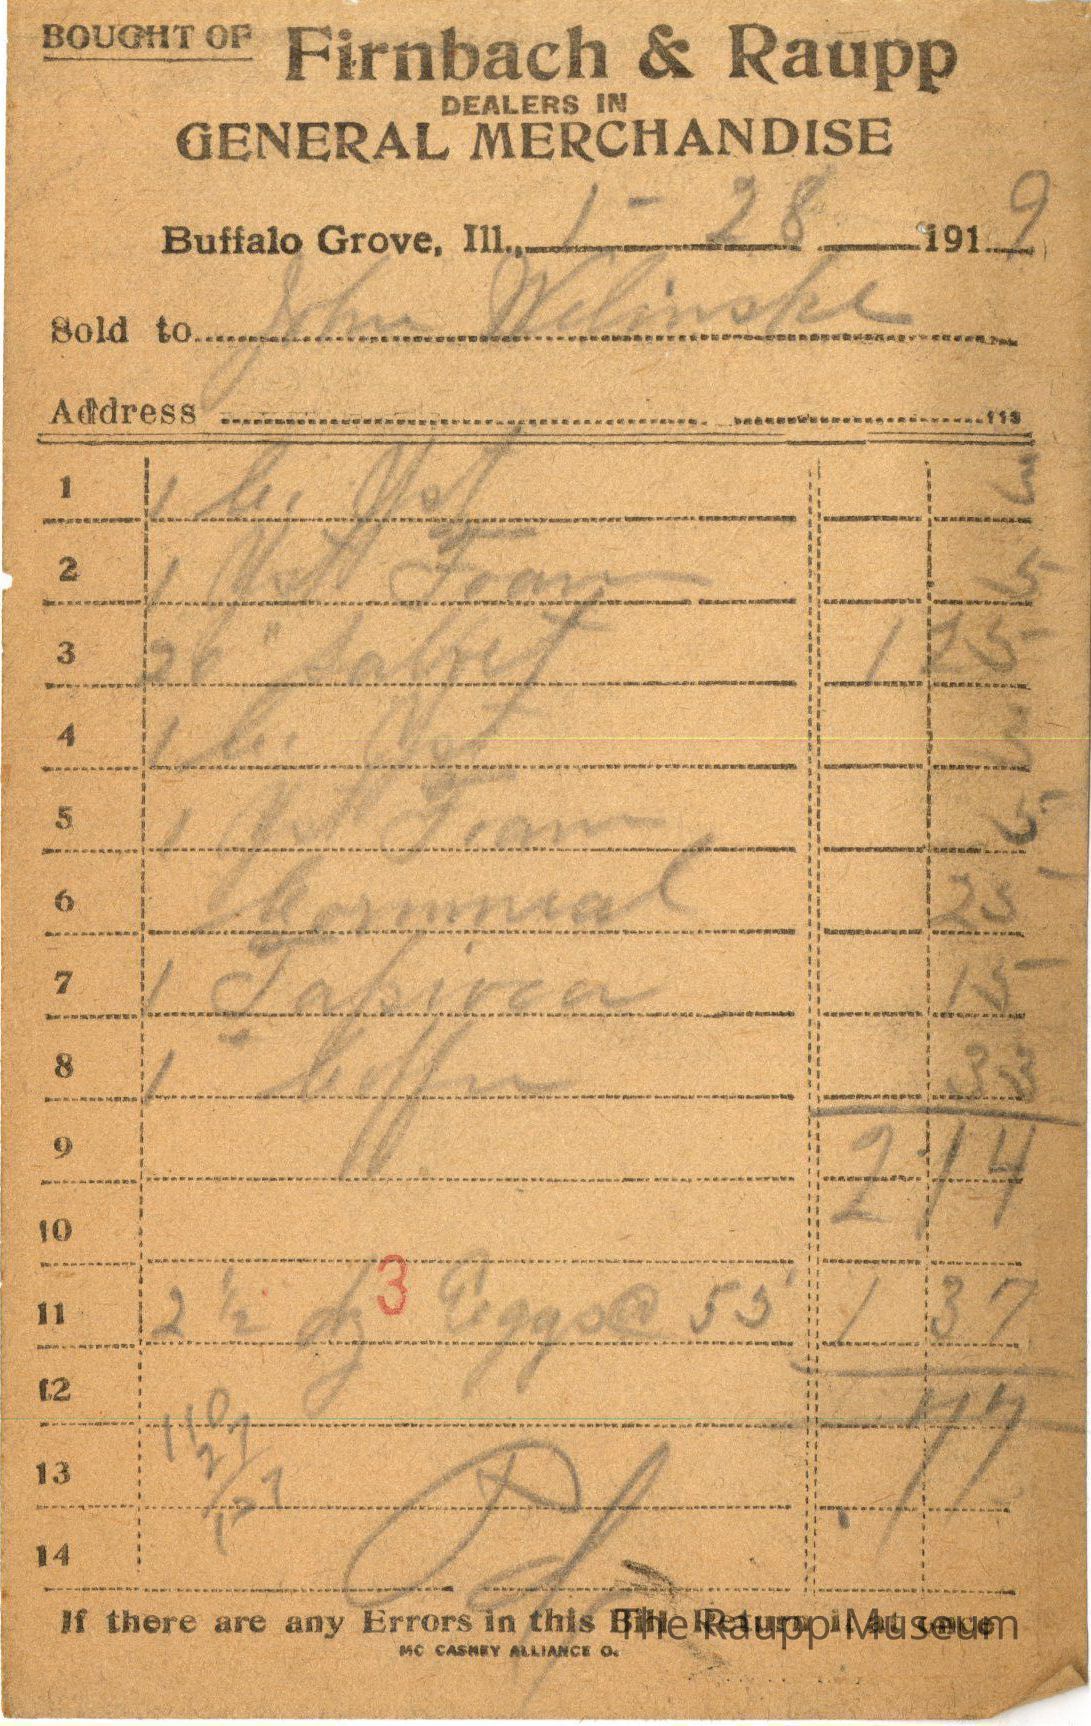 BOUGHT OF Firnbach & Raupp
DEALERS IN
GENERAL MERCHANDISE
Buffalo Grove, Ill., 1 - 28 1919
Sold to John Welinske
Address
1 1 3
2 1 Yst Foam 5
3 26 " 1 25
4 1 3
5 1 Yst Foam 5
6 Cornmeal 25
7 1 Tapioca 15
8 1 Coffee 33
9 2 14
10
11 2 1/2 dz 3 Eggs @ 55 1 37
12 77
13
14 Pd
If there are any Errors in this Bill Return it at once
The Raupp Museum
MC CASKEY ALLIANCE O.